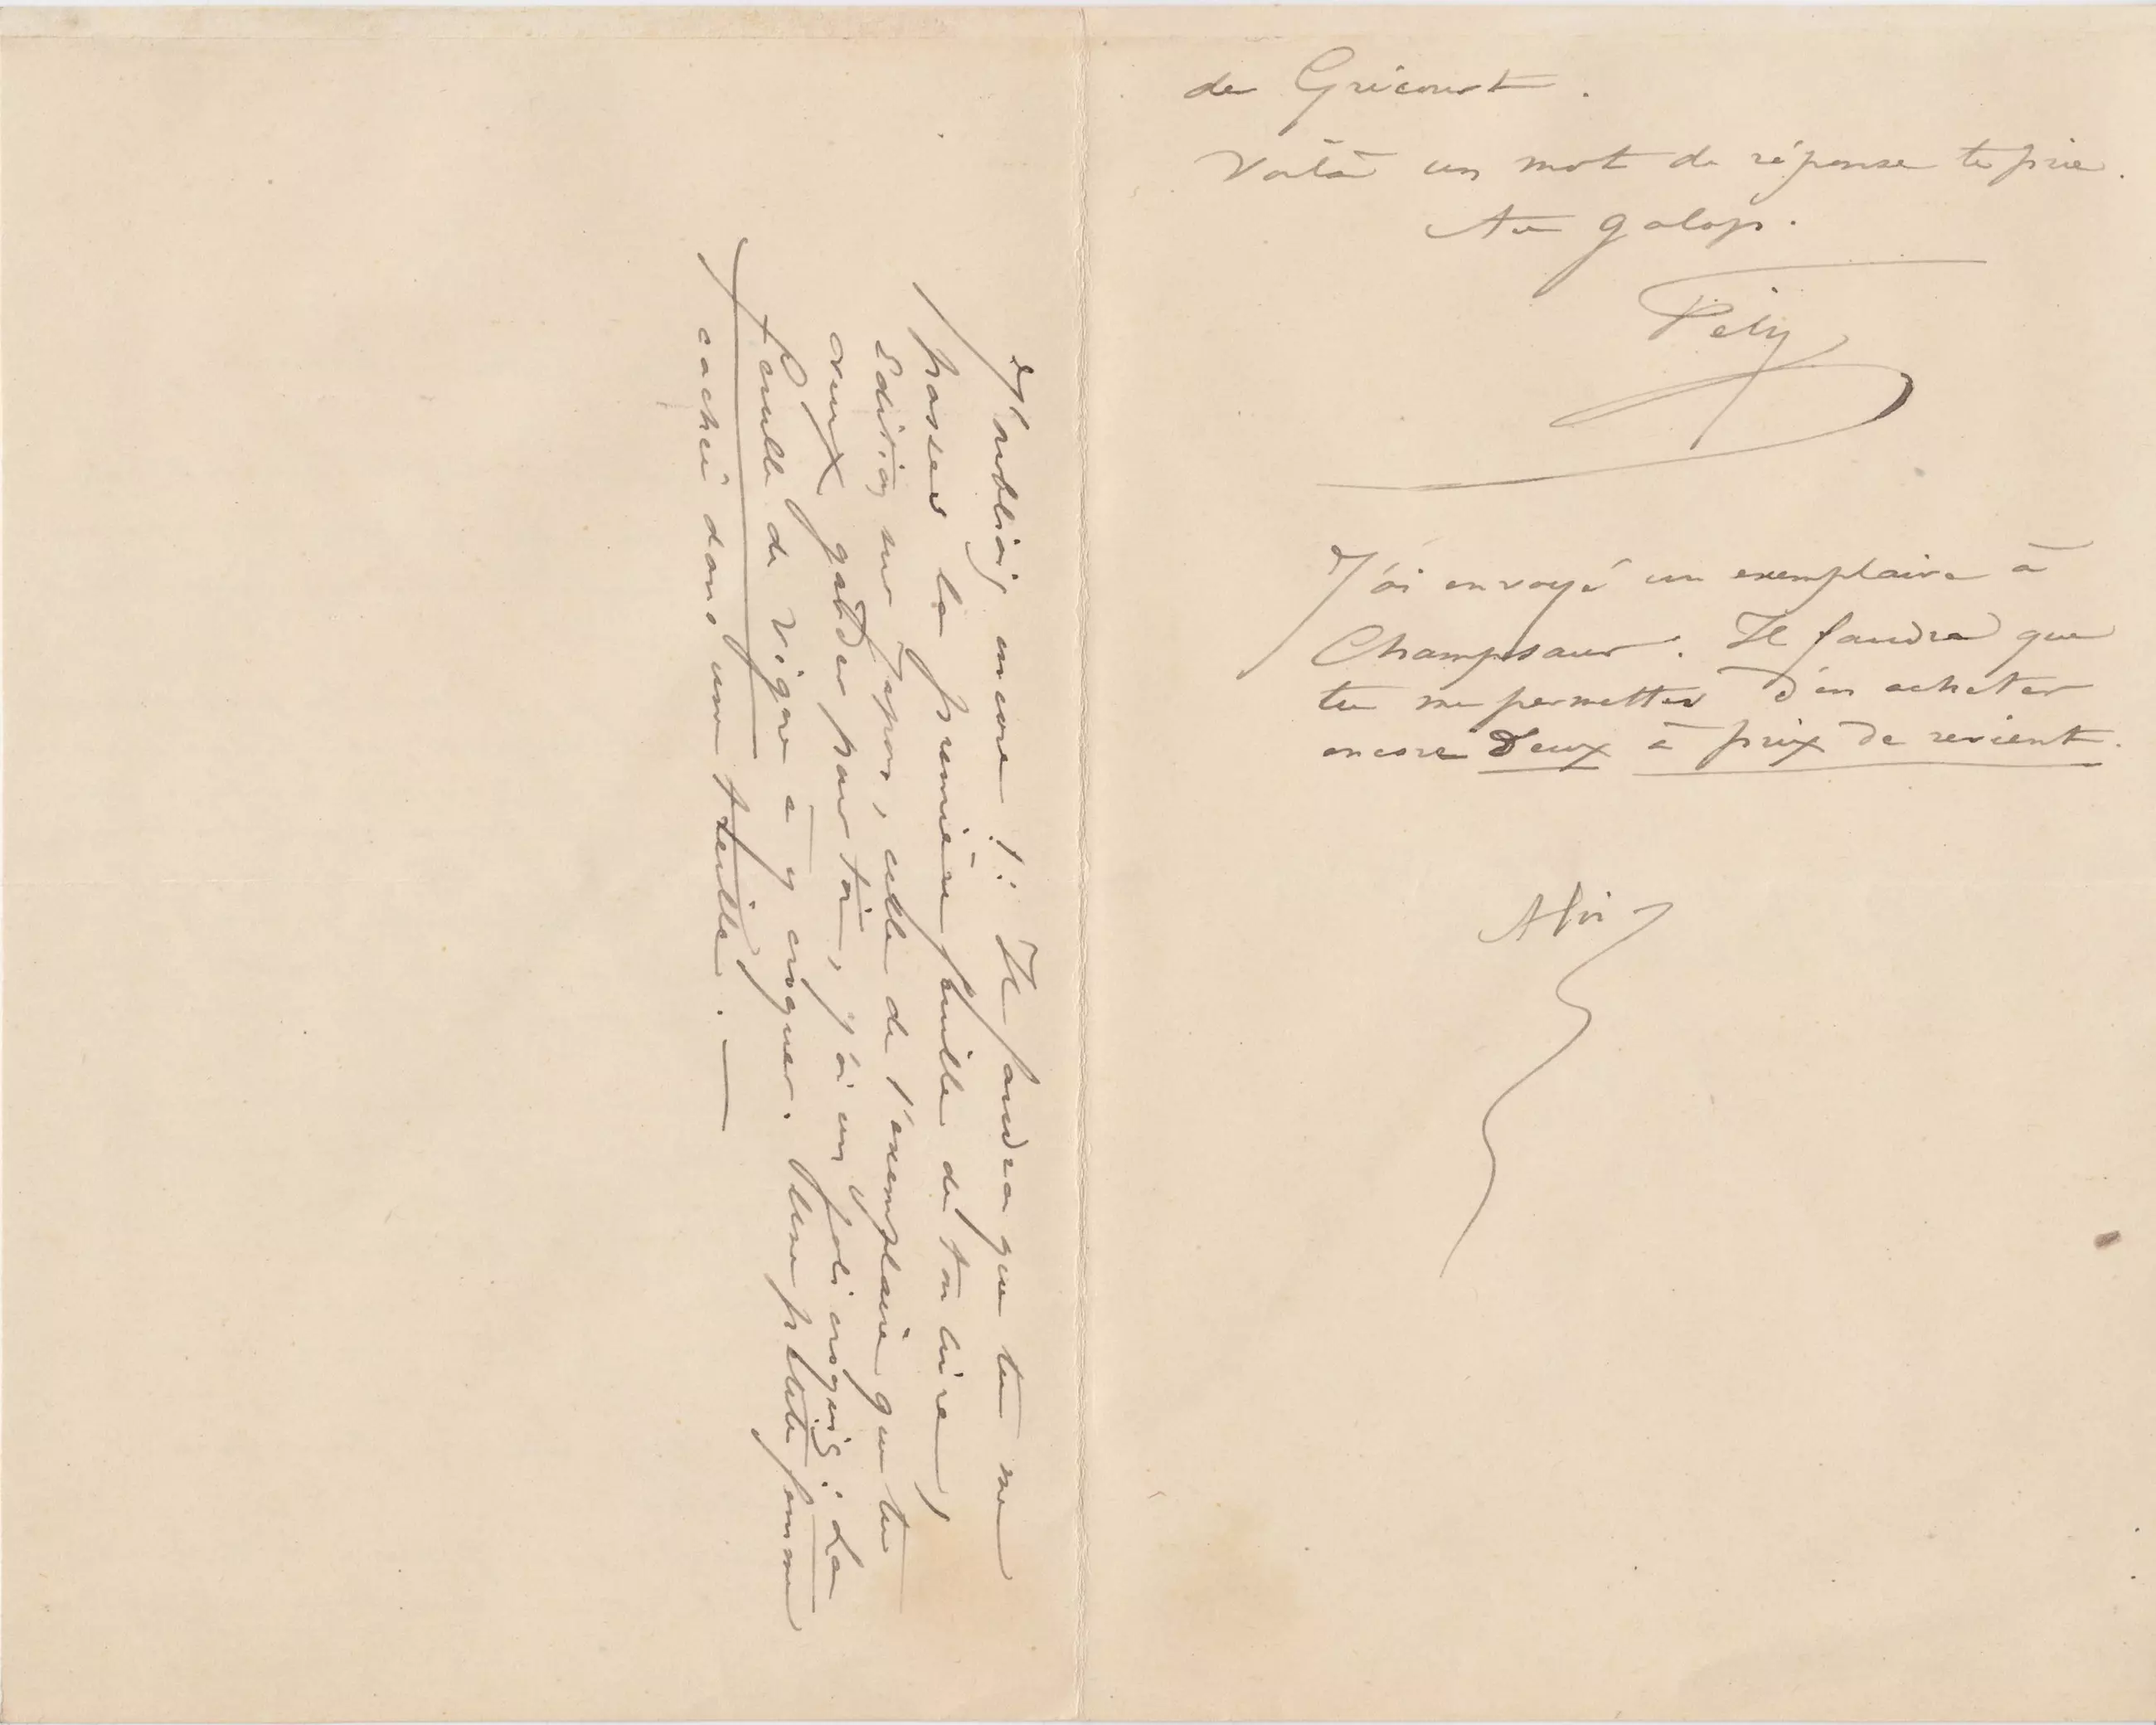 de Gricourt.
Voilà un mot de réponse te prie.
Au galop.
Fély
J'ai envoyé un exemplaire à
Champsaur. Il faudra que
tu me permettes d'en acheter
encore deux à prix de revient.
J'oubliais encore !: Il faudra que tu me
passes la première feuille de ton livre,
Edition sur Japon, celle de l'exemplaire que tu
veux garder pour toi, j'ai un joli croquis : La
feuille de vigne à y croquer. Une petite femme
cachée dans une feuille. —